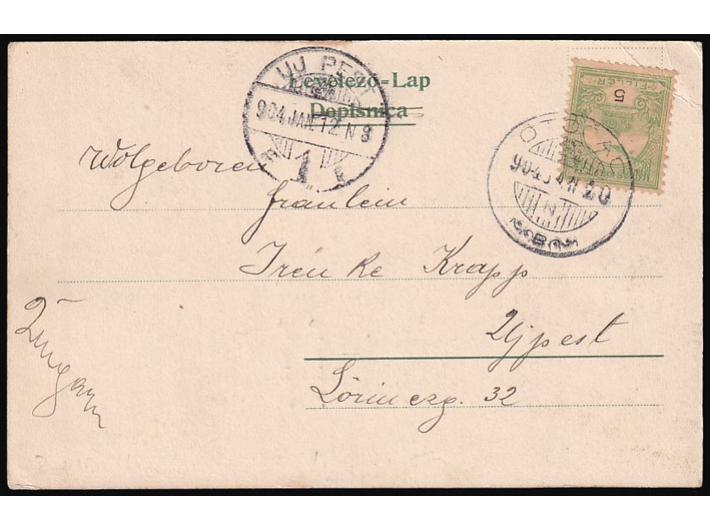 Levelező-Lap
Dopisnica
UJ PEST
904 JAN. 12 N 8
1
FILLER
5
Wolgeboren
fräulein
Irénke Krapp
Ujpest
Lőrinczg. 32